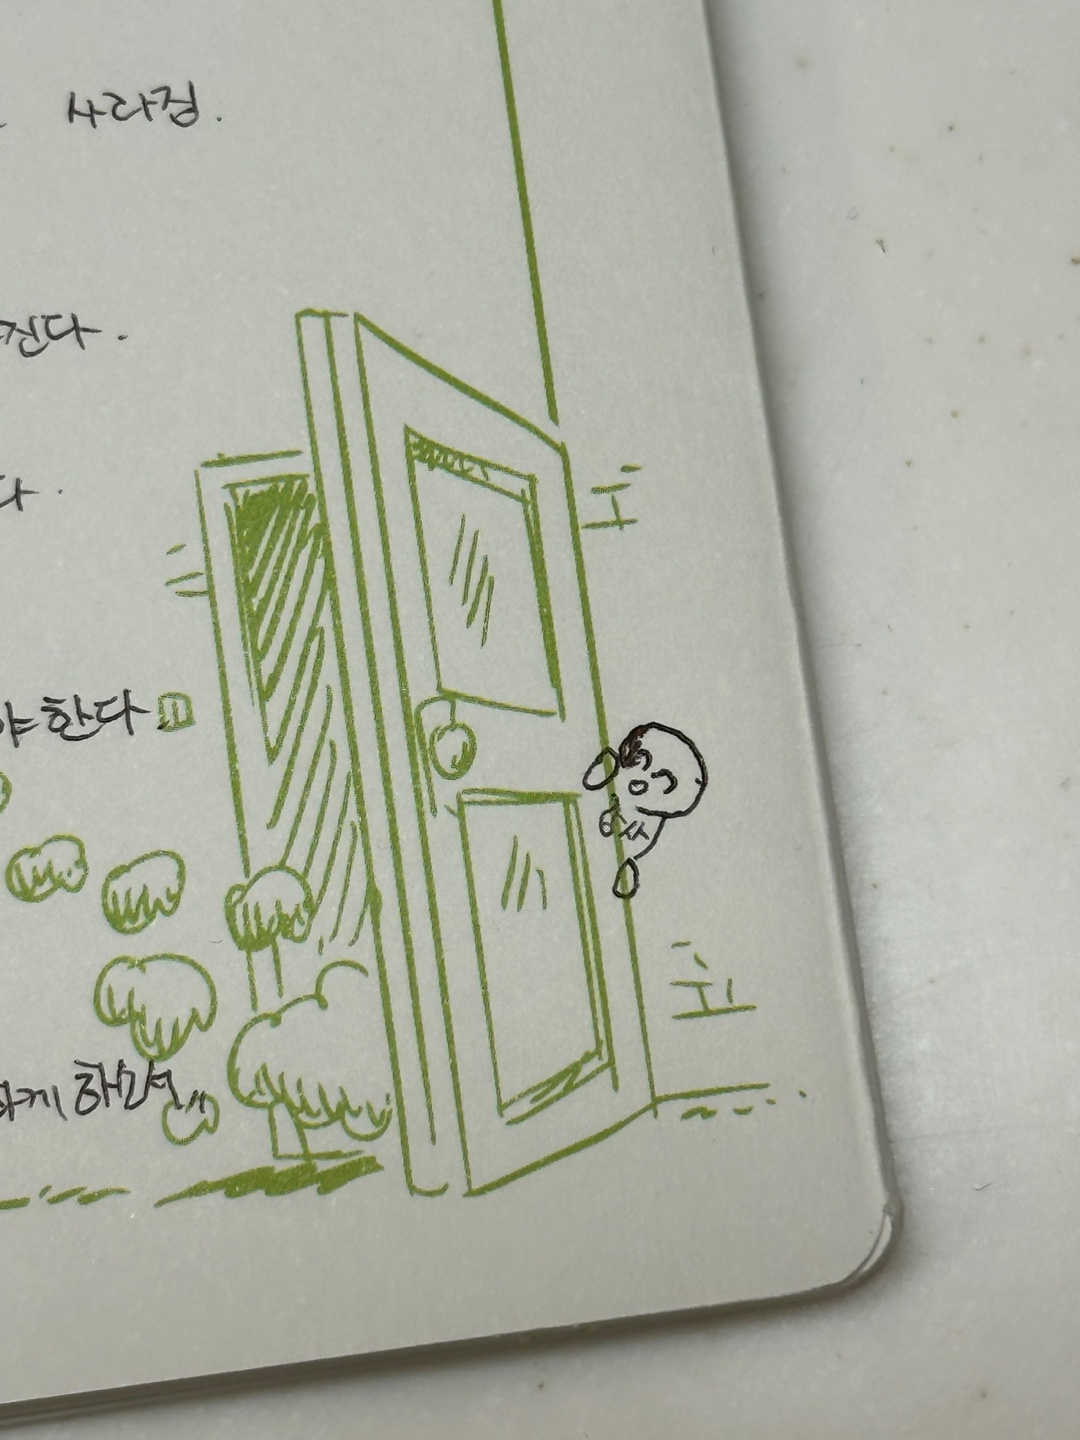 사라짐.
진다.
다.
야 한다
하게 하면,,